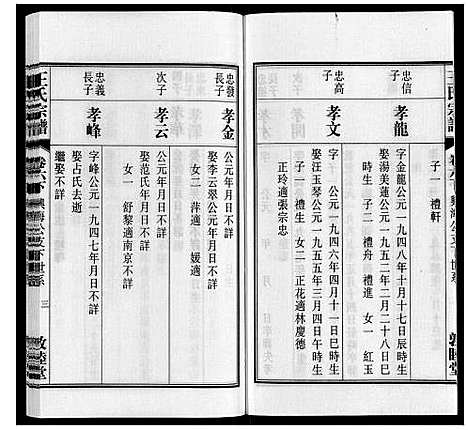 王氏宗譜
卷六下
敦睦堂
子一 禮軒
忠信
次子
孝龍
字金龍公元一九四八年十月十七日辰時生
娶湯美蓮公元一九五二年二月二十八日巳
時生 子二 禮舟 禮進 女一 紅玉
忠高
長子
孝文
字 公元一九四六年四月十一日巳時生
娶汪玉琴公元一九五五年三月四日午時生
子一 禮生 女二 正花適林慶德
正玲適張宗忠
忠發
長子
孝金
公元一九 年月日不詳
娶李云翠公元年月日不詳
女二 萍適 媛適
次子
孝云
公元年月日不詳
娶范氏年月日不詳
女一 舒黎適南京不詳
忠義
長子
孝峰
字峰公元一九四七年月日不詳
娶占氏去逝
繼娶不詳
王氏宗譜
卷六下
三
敦睦堂